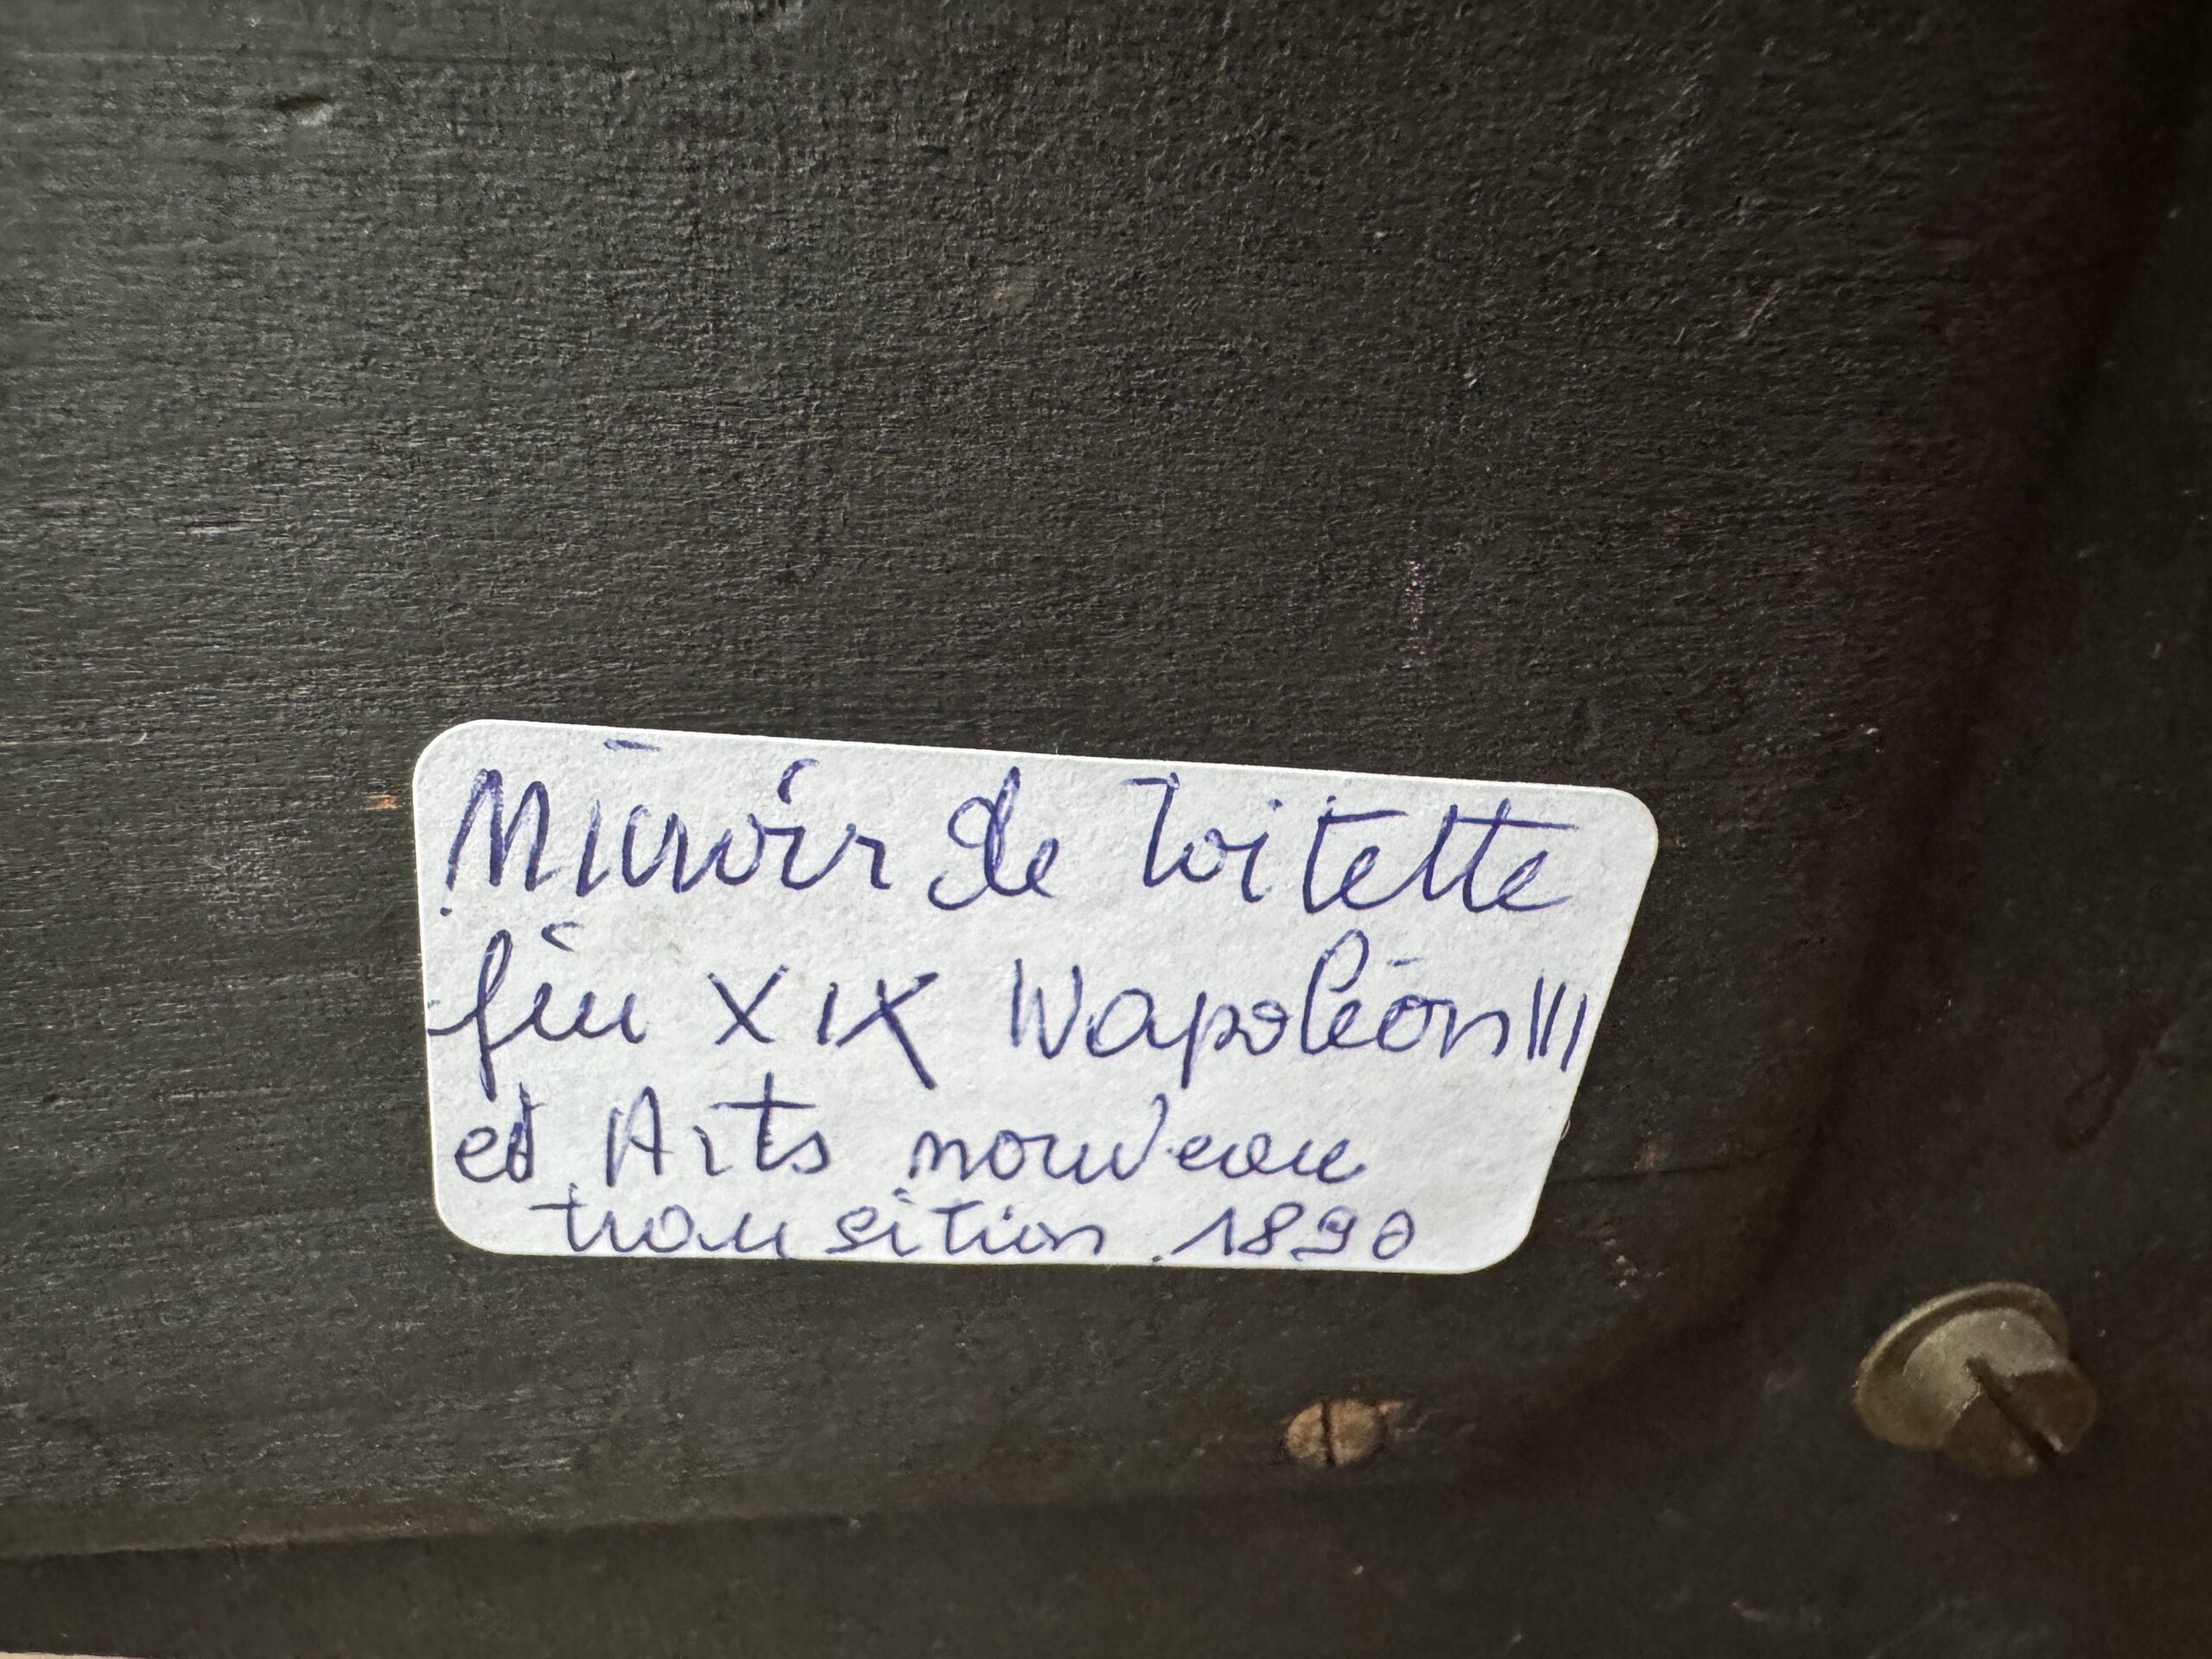 Miroir de Toitette
fin XIX Napoléon III
et Arts nouveau
transition 1890